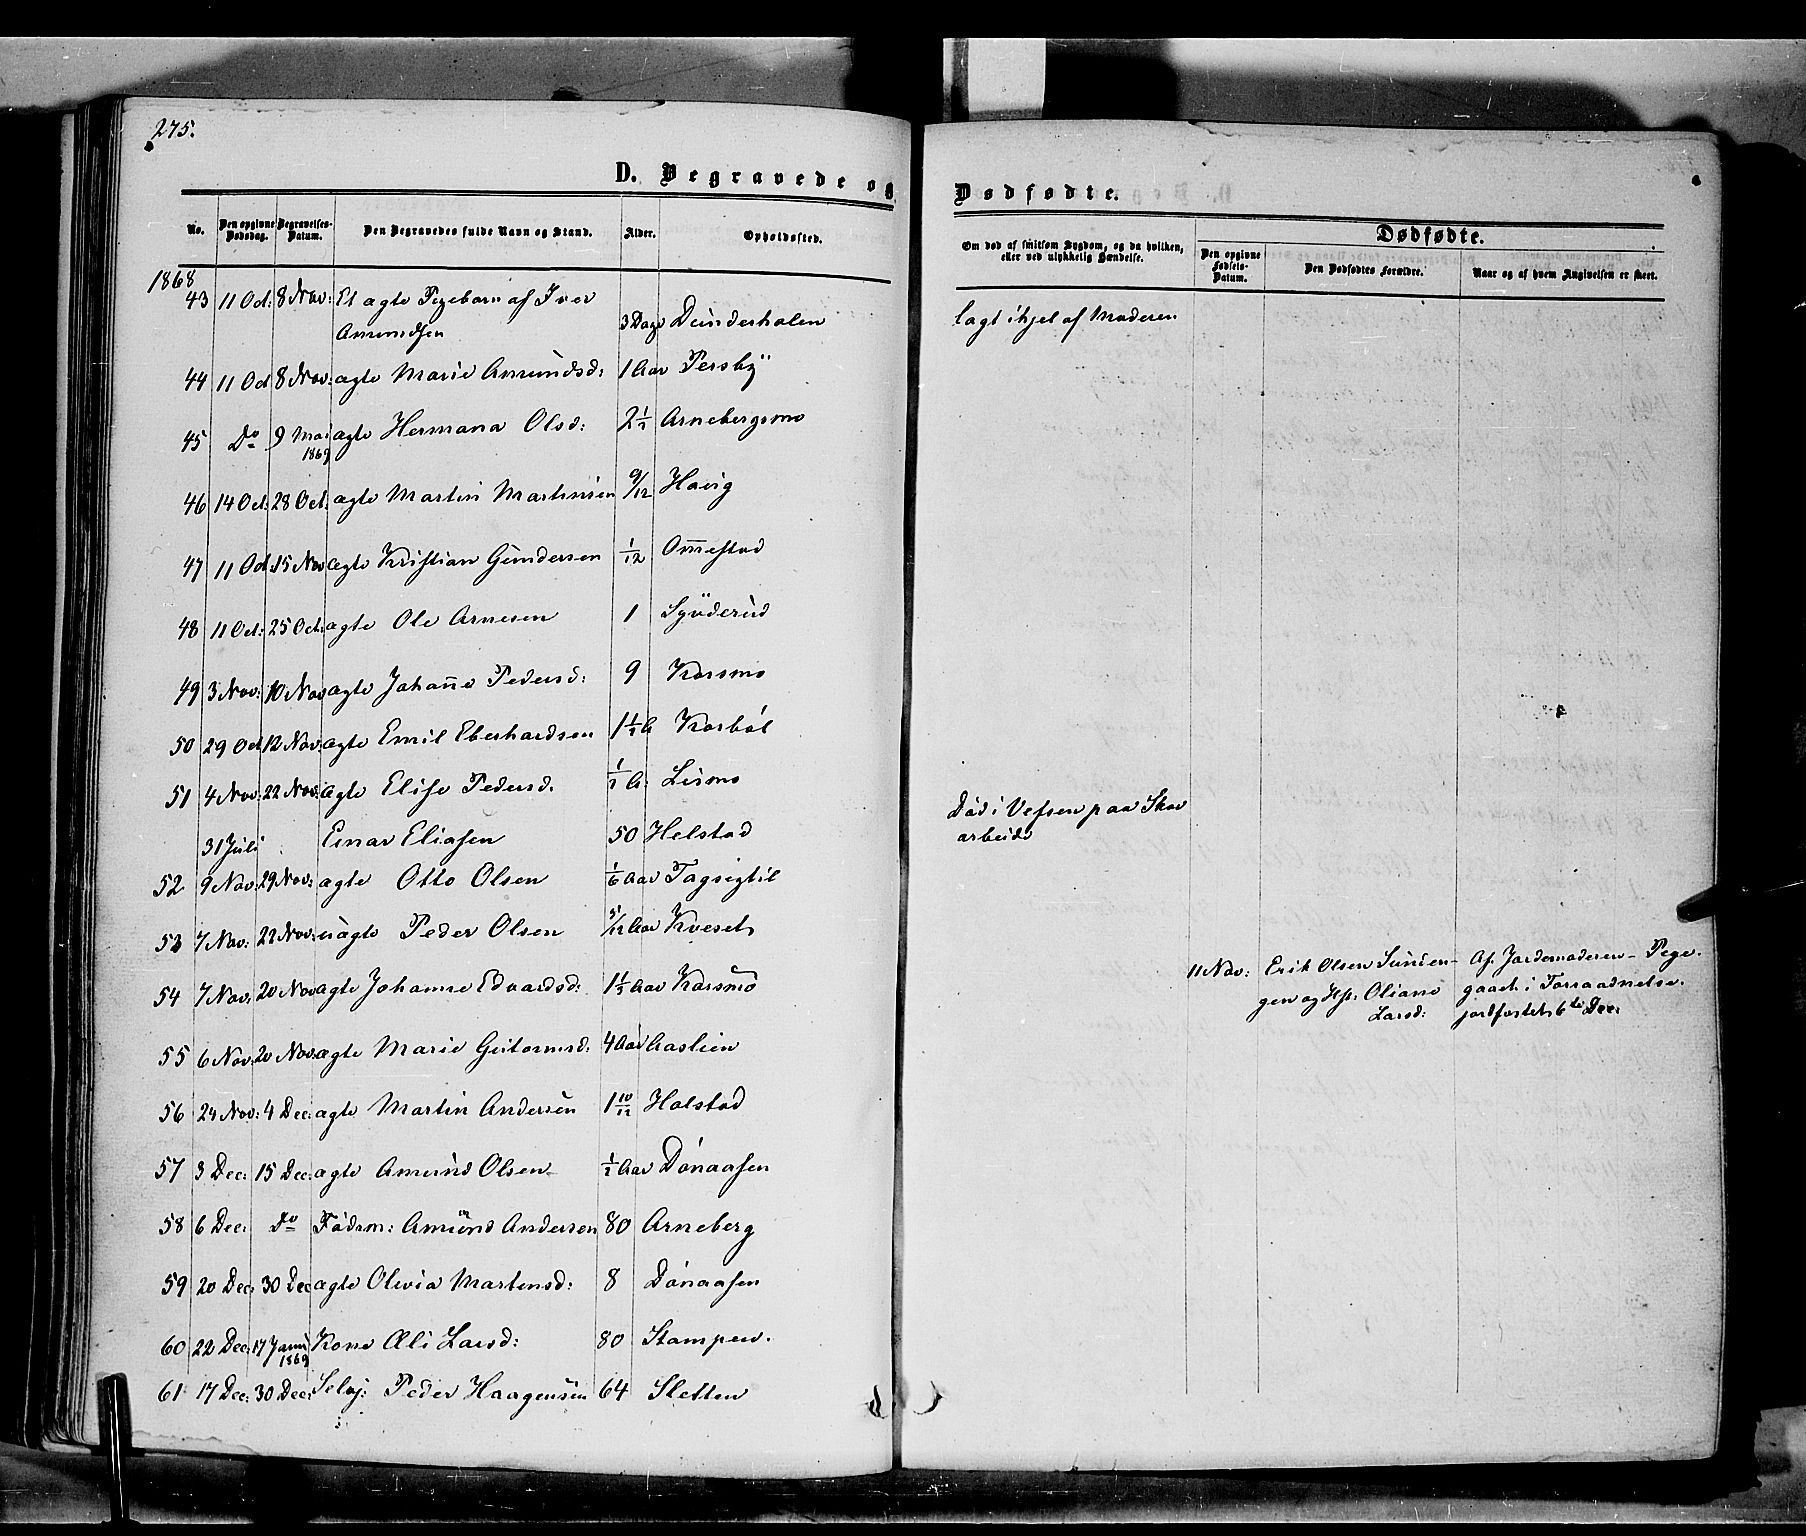 275.
D. Begravede og
Dødfødte.
No.
Den opgivne Dødsdag.
Begravelses-Datum.
Den Begravedes fulde Navn og Stand.
Alder.
Opholdssted.
Om død af smitsom Sygdom, og da hvilken, eller ved ulykkelig Hændelse.
Dødfødte.
Den opgivne Fødsels-Datum.
Den Dødfødtes Forældre.
Naar og af hvem Angivelsen er skeet.
1868
43 11 Oct: 8 Nov: Et ægte Pigebarn af Iver
Amundsen 3 Dage Dunderholen lagt ihjel af Moderen
44 11 Oct 8 Nov: ægte Marie Amundsd: 1 Aar Persby
45 Do 9 Mai 1869 ægte Hermana Olsd: 2½ Arnebergsmo
46 14 Oct: 28 Oct: ægte Martin Martinsen 9/12 Havig
47 11 Oct 15 Nov ægte Kristian Gundersen 1/12 Om̅estad
48 11 Oct: 25 Oct: ægte Ole Arnesen 1
49 3 Nov: 10 Nov ægte Johan̅e Pedersd: 9 Karsmo
50 29 Oct 12 Nov: ægte Emil Eberhardsen 1½ A Karbøl
51 4 Nov: 22 Nov: ægte Elise Pedersd. ½ A: Lismo
31 Juli Einar Eliasen 50 Helstad Død i Vefsen paa Skov
arbeide
52 9 Nov: 29 Nov: ægte Otto Olsen 1/6 Aar
53 7 Nov: 22 Nov: uægte Peder Olsen 5/12 Aar Kveset
54 7 Nov: 20 Nov ægte Johanne Edvardsd: 1½ Aar Karsmo
11 Nov: Erik Olsen
gen og H: Oliane
Larsd:
Af Jordemoderen - Pige.
gaaet i Forraadnelse.
jordfæstet 6te Dec:
55 6 Nov: 20 Nov: ægte Marie Gutormsd: 4 Aar Aaslien
56 24 Nov: 4 Dec: ægte Martin Andersen 1 10/12 Halstad
57 3 Dec: 15 Dec: ægte Amund Olsen ½ Aar Dønaasen
58 6 Dec: Do Fødsm: Amund Andersen 80 Arneberg
59 20 Dec: 30 Dec ægte Olivia Martensd: 8 Dønaasen
60 22 Dec: 17 Janu 1869 Kone Eli Larsd: 80 Stampen.
61 17 Dec: 30 Dec: Selvej: Peder Haagensen 64 Sletten